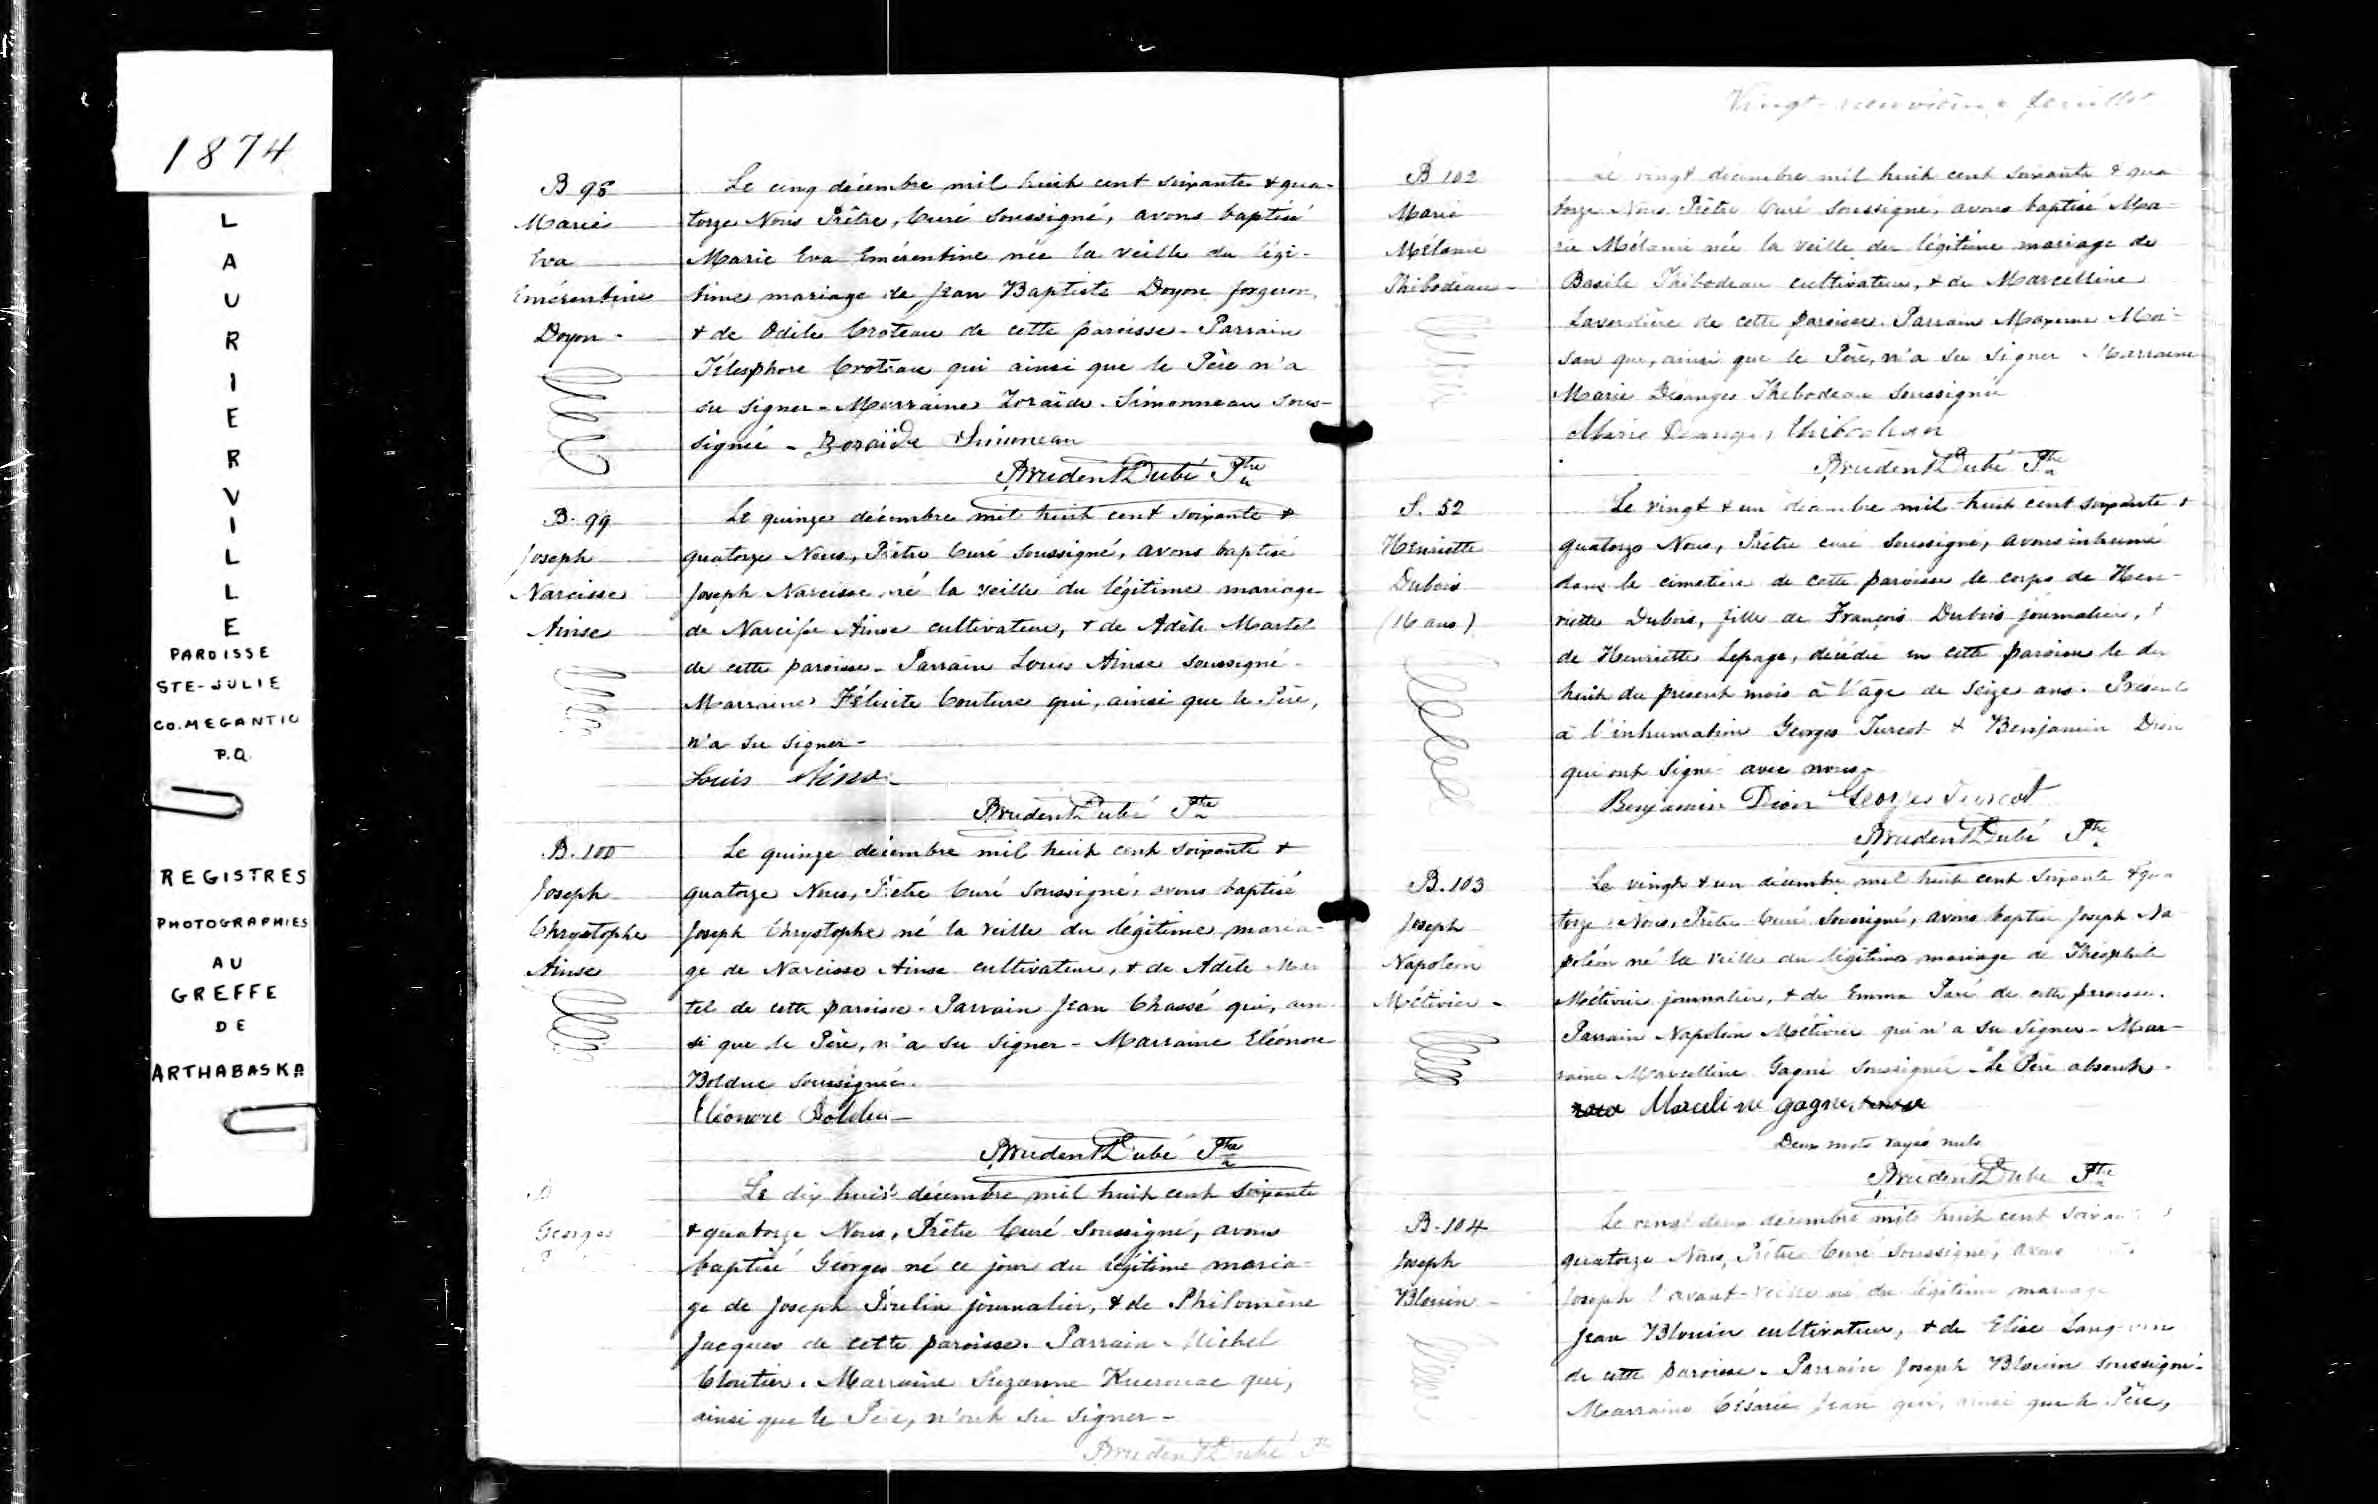 1874
LAURIERVILLE
PAROISSE
STE-JULIE
CO. MEGANTIC
P.Q.
REGISTRES
PHOTOGRAPHIES
AU
GREFFE
DE
ARTHABASKA
B 98
Marie
Eva
Emérentine
Doyon -
Le cinq décembre mil huit cent soixante & qua-
torze Nous Prêtre, Curé soussigné, avons baptisé
Marie Eva Emérentine née la veille du légi-
time mariage de Jean Baptiste Doyon forgeron,
& de Odile Croteau de cette paroisse - Parrain
Télesphore Croteau qui ainsi que le Père n'a
su signer - Marraine Zoraïde Simonneau sous-
signée - Zoraïde Simoneau
Prudent Dubé Ptre
B. 99
Joseph
Narcisse
Ainse
Le quinze décembre mil huit cent soixante &
quatorze Nous, Prêtre Curé soussigné, avons baptisé
Joseph Narcisse né la veille du légitime mariage
de Narcisse Ainse cultivateur, & de Adèle Martel
de cette paroisse - Parrain Louis Ainse soussigné -
Marraine Félicité Couture qui, ainsi que le Père,
n'a su signer -
Louis Ainse -
Prudent Dubé Ptre
B. 100
Joseph
Chrystophe
Ainse
Le quinze décembre mil huit cent soixante &
quatorze Nous, Prêtre Curé soussigné, avons baptisé
Joseph Chrystophe né la veille du légitime maria-
ge de Narcisse Ainse cultivateur, & de Adèle Mar
tel de cette paroisse. Parrain Jean Chassé qui, ain
si que le Père, n'a su signer - Marraine Eléonore
Bolduc soussignée.
Eléonore Bolduc -
Prudent Dubé Ptre
B
Georges
Le dix huit décembre mil huit cent soixante
& quatorze Nous, Prêtre Curé soussigné, avons
baptisé Georges né ce jour du légitime maria-
ge de Joseph Poulin journalier, & de Philomène
Jacques de cette paroisse. Parrain Michel
Cloutier. Marraine Suzanne Kuerouac qui,
ainsi que le Père, n'ont su signer -
Prudent Dubé Ptre
Vingt-neuvième feuillet
B 102
Marie
Mélanie
Thibodeau -
Le vingt décembre mil huit cent soixante & qua
torze Nous Prêtre Curé soussigné, avons baptisé Ma-
rie Mélanie née la veille du légitime mariage de
Basile Thibodeau cultivateur, & de Marcelline
Laverdière de cette paroisse. Parrain Maxime Moi-
san qui, ainsi que le Père, n'a su signer - Marraine
Marie Désanges Thibodeau soussignée
Marie Désanges Thibodeau
Prudent Dubé Ptre
S. 52
Henriette
Dubois
(16 ans)
Le vingt & un décembre mil huit cent soixante &
quatorze Nous, Prêtre curé soussigné, avons inhumé
dans le cimetière de cette paroisse le corps de Hen-
riette Dubois, fille de François Dubois journalier, &
de Henriette Lepage, décédée en cette paroisse le dix
huit du présent mois à l'âge de seize ans. Présents
à l'inhumation Georges Turcot & Benjamin Dion
qui ont signé avec nous -
Benjamin Dion Georges Turcot
Prudent Dubé Ptre
B. 103
Joseph
Napoléon
Métivier -
Le vingt & un décembre mil huit cent soixante & qua
torze Nous, Prêtre Curé soussigné, avons baptisé Joseph Na
poléon né la veille du légitime mariage de Théophile
Métivier journalier, & de Emma Paré de cette paroisse.
Parrain Napoléon Métivier qui n'a su signer - Mar-
raine Marcelline Gagné soussignée - Le Père absent -
Marceline gagne
Deux mots rayés nuls
Prudent Dubé Ptre
B. 104
Joseph
Blouin -
Le vingt deux décembre mil huit cent soixante &
quatorze Nous, Prêtre Curé soussigné, avons
Joseph l'avant-veille né du légitime mariage
Jean Blouin cultivateur, & de Elise Langevin
de cette paroisse - Parrain Joseph Blouin soussigné -
Marraine Césarie Jean qui, ainsi que le Père,